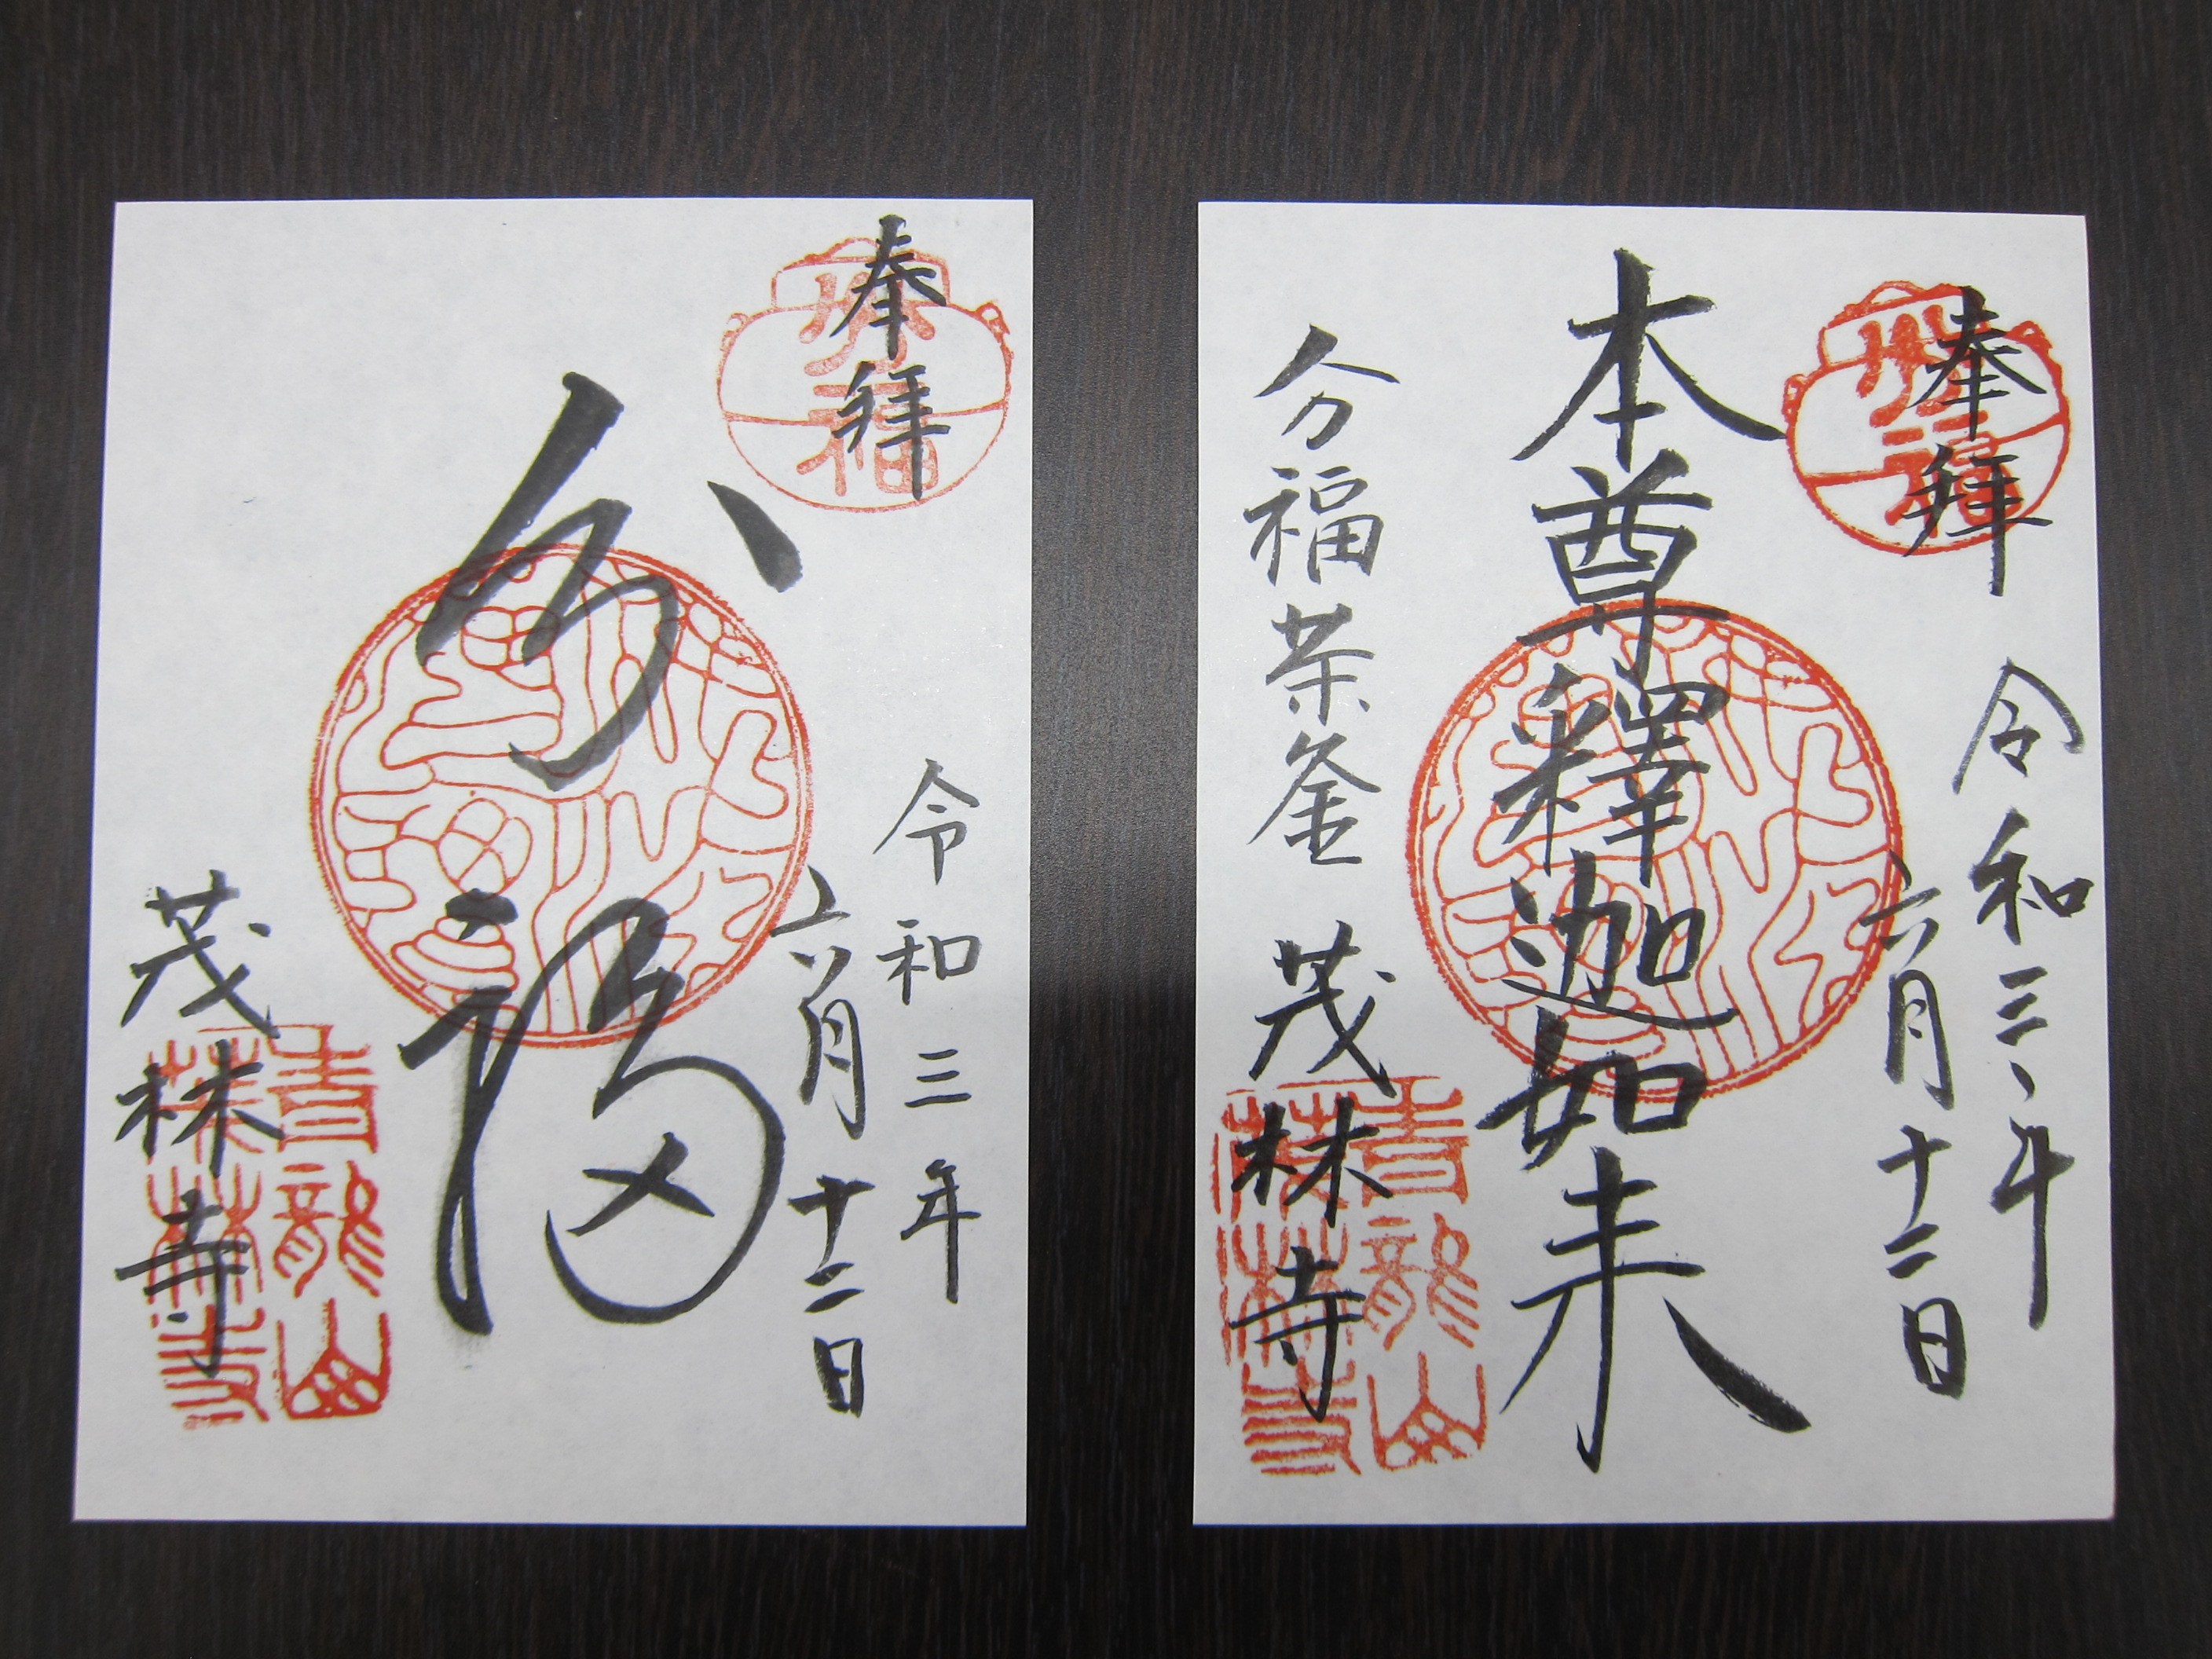 奉拝
令和三年
六月十二日
分福
茂林寺
分福
青龍山
茂林寺
奉拝
令和三年
六月十二日
本尊釋迦如来
分福茶釜 茂林寺
分福
青龍山
茂林寺